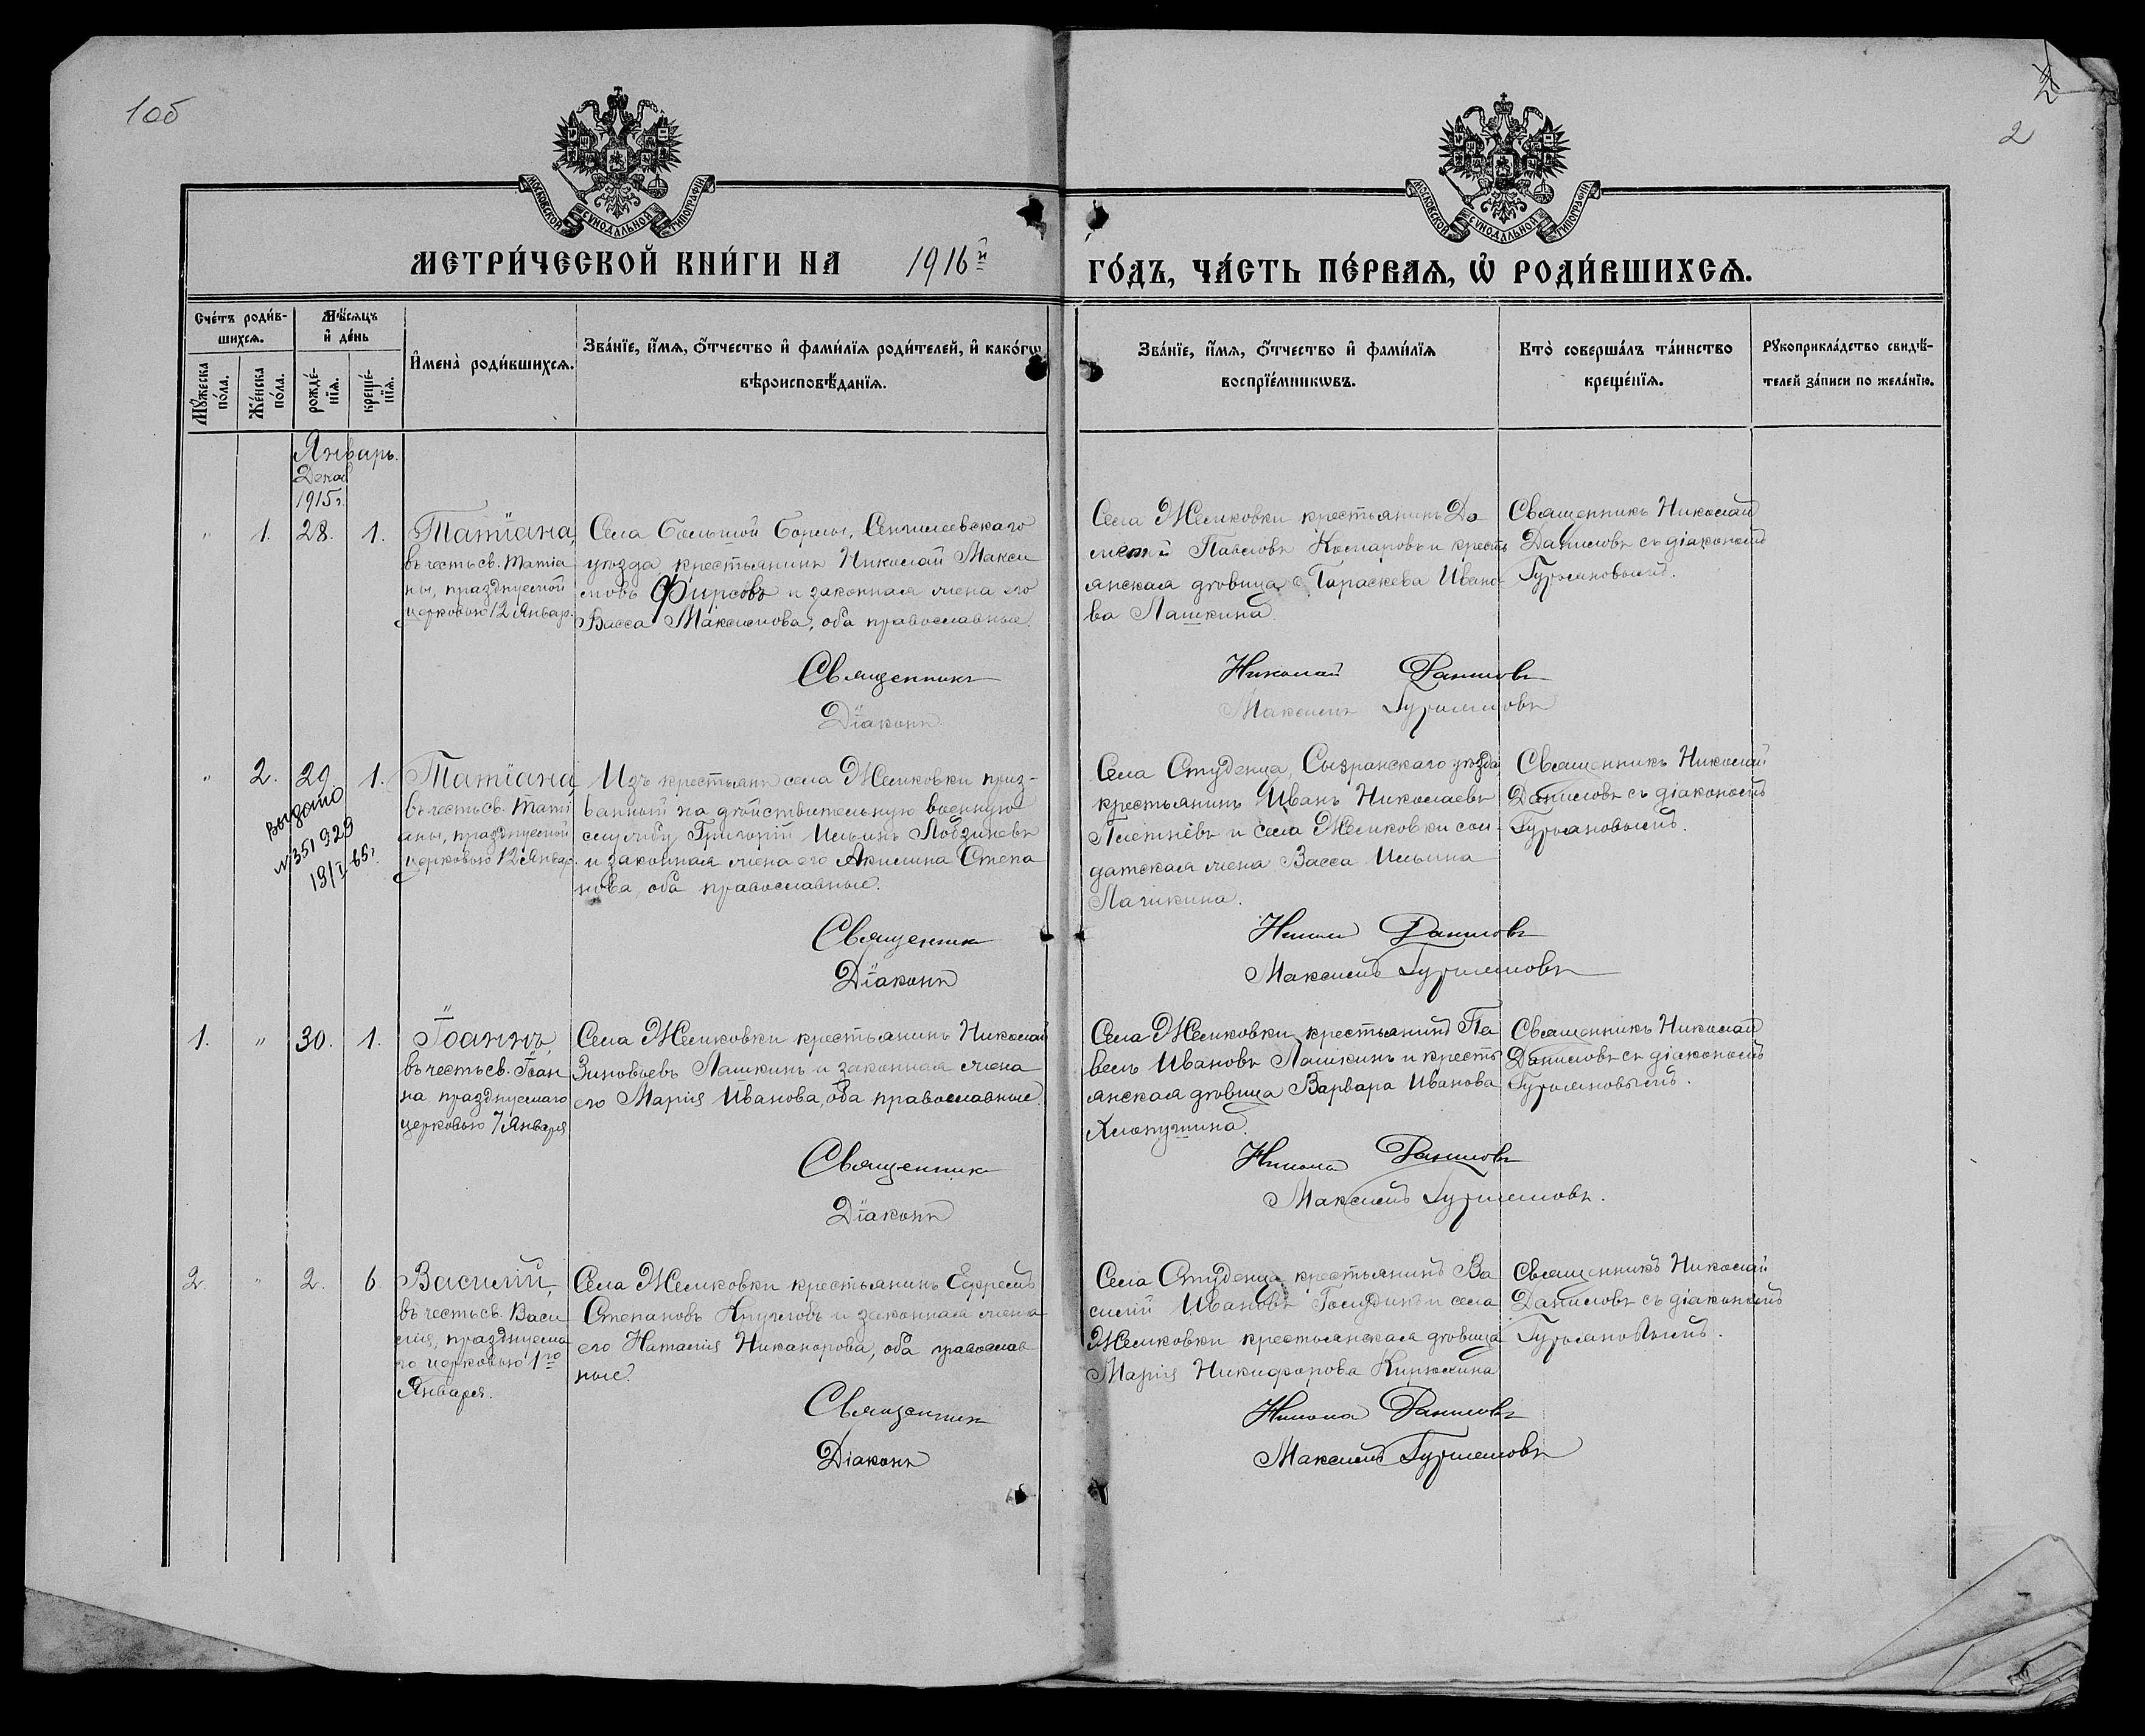 1об
2
2
МОСКОВСКОЙ СѴНОДАЛЬНОЙ ТИПОГРАФІИ
МОСКОВСКОЙ СѴНОДАЛЬНОЙ ТИПОГРАФІИ
МЕТРИ́ЧЕСКОЙ КНИ́ГИ НА 1916й
ГО́ДЪ, ЧА́СТЬ ПЕ́РВАЯ, Ѡ҆ РОДИ́ВШИХСЯ.
Сче́тъ роди́в-
шихся.
Мѣ́сяцъ
и҆ де́нь
Мꙋ́жеска
по́ла.
Же́нска
по́ла.
рожде́-
нїя.
креще́-
нїя.
И҆мена̀ роди́вшихся.
Зва́нїе, и҆́мя, ѻ҆́тчество и҆ фами́лїя роди́телей, и҆ како́гѡ
вѣроисповѣ́данїя.
Зва́нїе, и҆́мя, ѻ҆́тчество и҆ фами́лїя
воспрїе́мникѡвъ.
Кто̀ соверша́лъ та́инство
креще́нїя.
Рꙋкоприкла́дство свидѣ́-
телей за́писи по жела́нїю.
Январь.
Декаб
1915г.
" 1. 28. 1.
Татіана,
въ честь св. Татіа
ны, празднуемой
церковью 12 Январ.
Села Большой Борлы, Сенгилеевскаго
уѣзда, крестьянинъ Николай Макси
мовъ Фирсовъ и законная жена его
Васса Максимова, оба православные.
Села Жемковки крестьянинъ До
Павловъ Комаровъ и кресть
янская дѣвица Параскева Ивано
ва Лашкина.
Священникъ Николай
Даниловъ съ діакономъ
Гурьяновымъ.
Священникъ Николай Даниловъ
Діаконъ Максимъ Гурьяновъ
" 2. 29 1.
выдано
№351929
19/I-65г.
Татіана
въ честь св. Тати
аны, празднуемой
церковью 12 Январ.
Изъ крестьянъ села Жемковки приз-
ванный на дѣйствительную военную
службу Григорій Ильинъ Лобзиневъ
и законная жена его Акилина Степа
нова, оба православные.
Села Студенца, Сызранскаго уѣзда
крестьянинъ Иванъ Николаевъ
Плетнёвъ и села Жемковки сол-
датская жена Васса Ильина
Лашкина.
Священникъ Николай
Даниловъ съ діакономъ
Гурьяновымъ.
Священникъ Никола Даниловъ
Діаконъ Максимъ Гурьяновъ
1. " 30. 1.
Іоаннъ,
въ честь св. Іоан
на празднуемаго
церковью 7 Января
Села Жемковки крестьянинъ Николай
Зиновьевъ Лашкинъ и законная жена
его Марія Иванова, оба православные.
Села Жемковки крестьянинъ Па
велъ Ивановъ Лашкинъ и кресть
янская дѣвица Варвара Иванова
Хлопушина.
Священникъ Николай
Даниловъ съ діакономъ
Гурьяновымъ.
Священникъ Никола Даниловъ
Діаконъ Максимъ Гурьяновъ.
2. " 2. 6.
Василій,
въ честь св. Васи
лія, празднуема
го церковью 1го
Января.
Села Жемковки крестьянинъ Ефремъ
Степановъ Кругловъ и законная жена
его Наталія Никанорова, оба православ
ные.
Села Студенца крестьянинъ Ва
силій Ивановъ и села
Жемковки крестьянская дѣвица
Марія Никифорова Кирюхина
Священникъ Николай
Даниловъ съ діакономъ
Гурьяновымъ.
Священникъ Никола Даниловъ
Діаконъ Максимъ Гурьяновъ